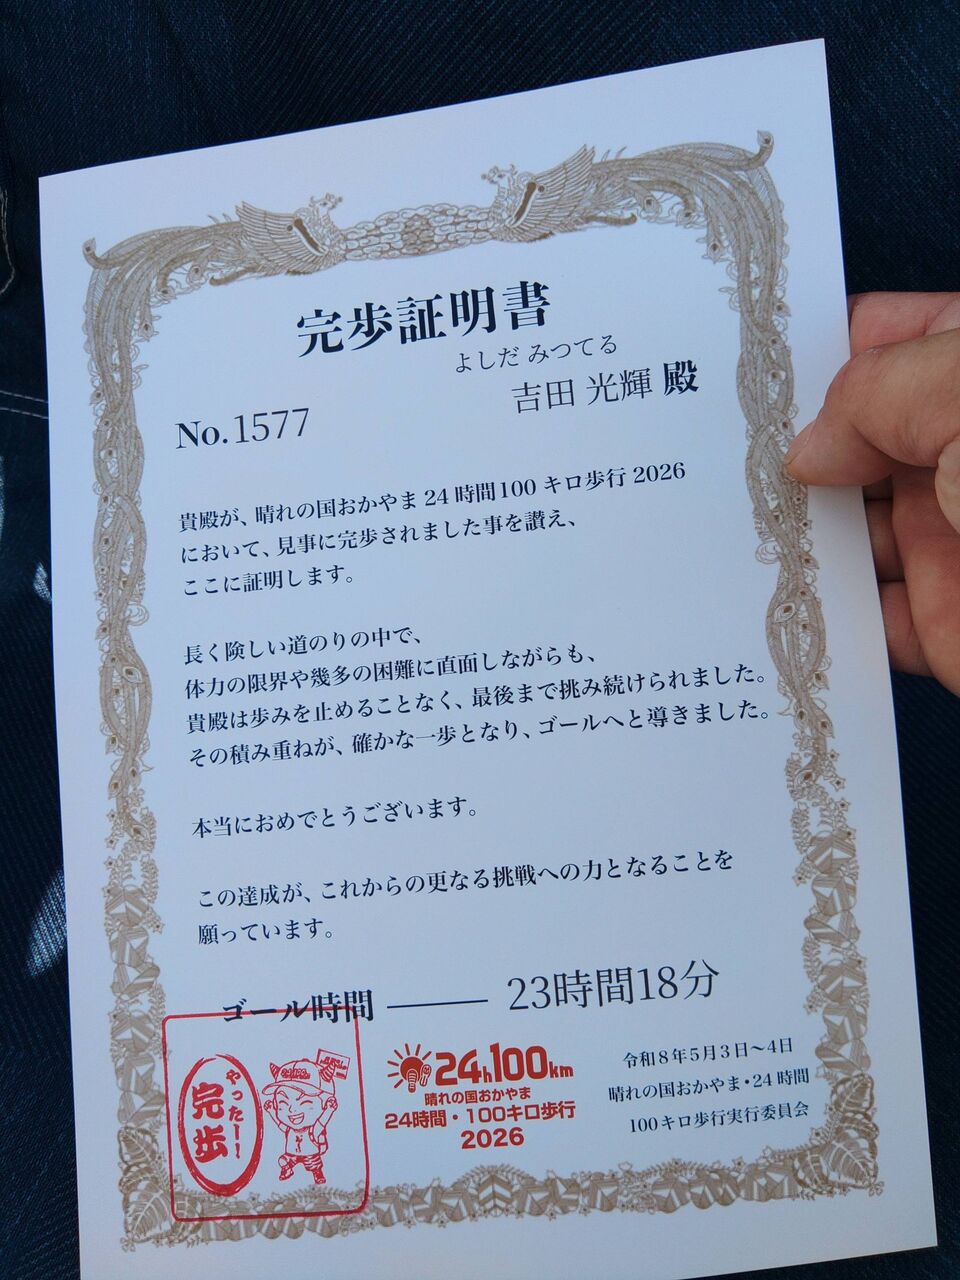 完歩証明書
よしだ みつてる
吉田 光輝 殿
No.1577
貴殿が、晴れの国おかやま 24 時間100 キロ歩行 2026
において、見事に完歩されました事を讃え、
ここに証明します。
長く険しい道のりの中で、
体力の限界や幾多の困難に直面しながらも、
貴殿は歩みを止めることなく、最後まで挑み続けられました。
その積み重ねが、確かな一歩となり、ゴールへと導きました。
本当におめでとうございます。
この達成が、これからの更なる挑戦への力となることを
願っています。
ゴール時間 ―― 23時間18分
やったー!!
完歩
24h100km
晴れの国おかやま
24時間・100キロ歩行
2026
令和8年5月3日～4日
晴れの国おかやま・24 時間
100キロ歩行実行委員会